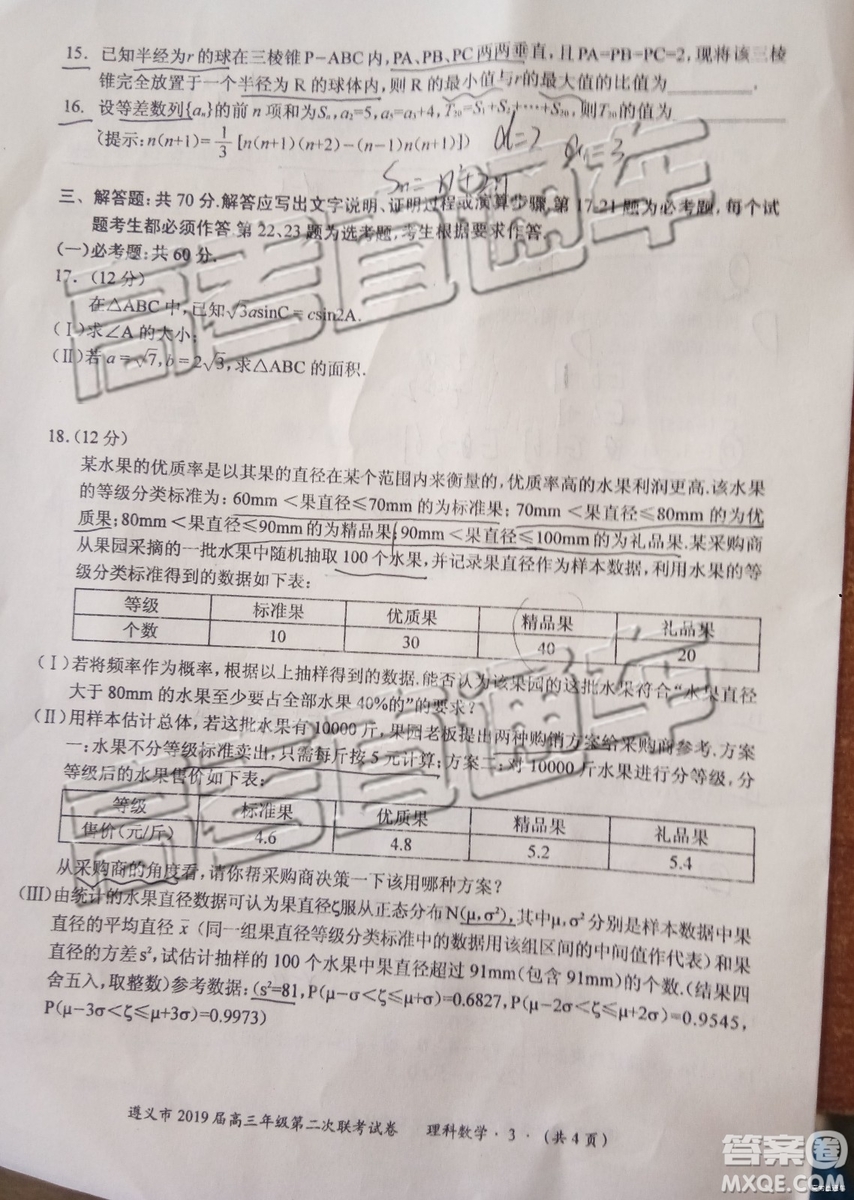 15. 已知半经为r的球在三棱锥P-ABC内,PA、PB、PC两两垂直,且PA=PB=PC=2,现将该三棱
锥完全放置于一个半径为R的球体内,则R的最小值与r的最大值的比值为________.
16. 设等差数列{aₙ}的前n项和为Sₙ,a₂=5,a₅=a₃+4,T₂₀=S₁+S₂+⋯+S₂₀,则T₂₀的值为________
(提示:n(n+1)=1/3[n(n+1)(n+2)-(n-1)n(n+1)]) d=2 a₁=3
Sₙ=n²+2n
三、解答题:共70分.解答应写出文字说明、证明过程或演算步骤.第17-21题为必考题,每个试
题考生都必须作答.第22、23题为选考题,考生根据要求作答.
(一)必考题:共60分.
17. (12分)
在△ABC中,已知√3asinC=csin2A.
(Ⅰ)求∠A的大小;
(Ⅱ)若a=√7,b=2√3,求△ABC的面积.
18.(12分)
某水果的优质率是以其果的直径在某个范围内来衡量的,优质率高的水果利润更高.该水果
的等级分类标准为:60mm<果直径≤70mm的为标准果;70mm<果直径≤80mm的为优
质果;80mm<果直径≤90mm的为精品果;90mm<果直径≤100mm的为礼品果.某采购商
从果园采摘的一批水果中随机抽取100个水果,并记录果直径作为样本数据,利用水果的等
级分类标准得到的数据如下表:
等级 标准果 优质果 精品果 礼品果
个数 10 30 40 20
(Ⅰ)若将频率作为概率,根据以上抽样得到的数据.能否认为该果园的这批水果符合“水果直径
大于80mm的水果至少要占全部水果40%的”的要求?
(Ⅱ)用样本估计总体,若这批水果有10000斤,果园老板提出两种购销方案给采购商参考.方案
一:水果不分等级标准卖出,只需每斤按5元计算;方案二:对10000斤水果进行分等级,分
等级后的水果售价如下表:
等级 标准果 优质果 精品果 礼品果
售价(元/斤) 4.6 4.8 5.2 5.4
从采购商的角度看,请你帮采购商决策一下该用哪种方案?
(Ⅲ)由统计的水果直径数据可认为果直径ζ服从正态分布N(μ,σ²),其中μ,σ²分别是样本数据中果
直径的平均直径x̄(同一组果直径等级分类标准中的数据用该组区间的中间值作代表)和果
直径的方差s²,试估计抽样的100个水果中果直径超过91mm(包含91mm)的个数.(结果四
舍五入,取整数)参考数据:(s²=81,P(μ-σ<ζ≤μ+σ)=0.6827,P(μ-2σ<ζ≤μ+2σ)=0.9545,
P(μ-3σ<ζ≤μ+3σ)=0.9973)
遵义市2019届高三年级第二次联考试卷 理科数学·3·(共4页)
高考直通车
高考直通车
答案卷
MXQE.COM